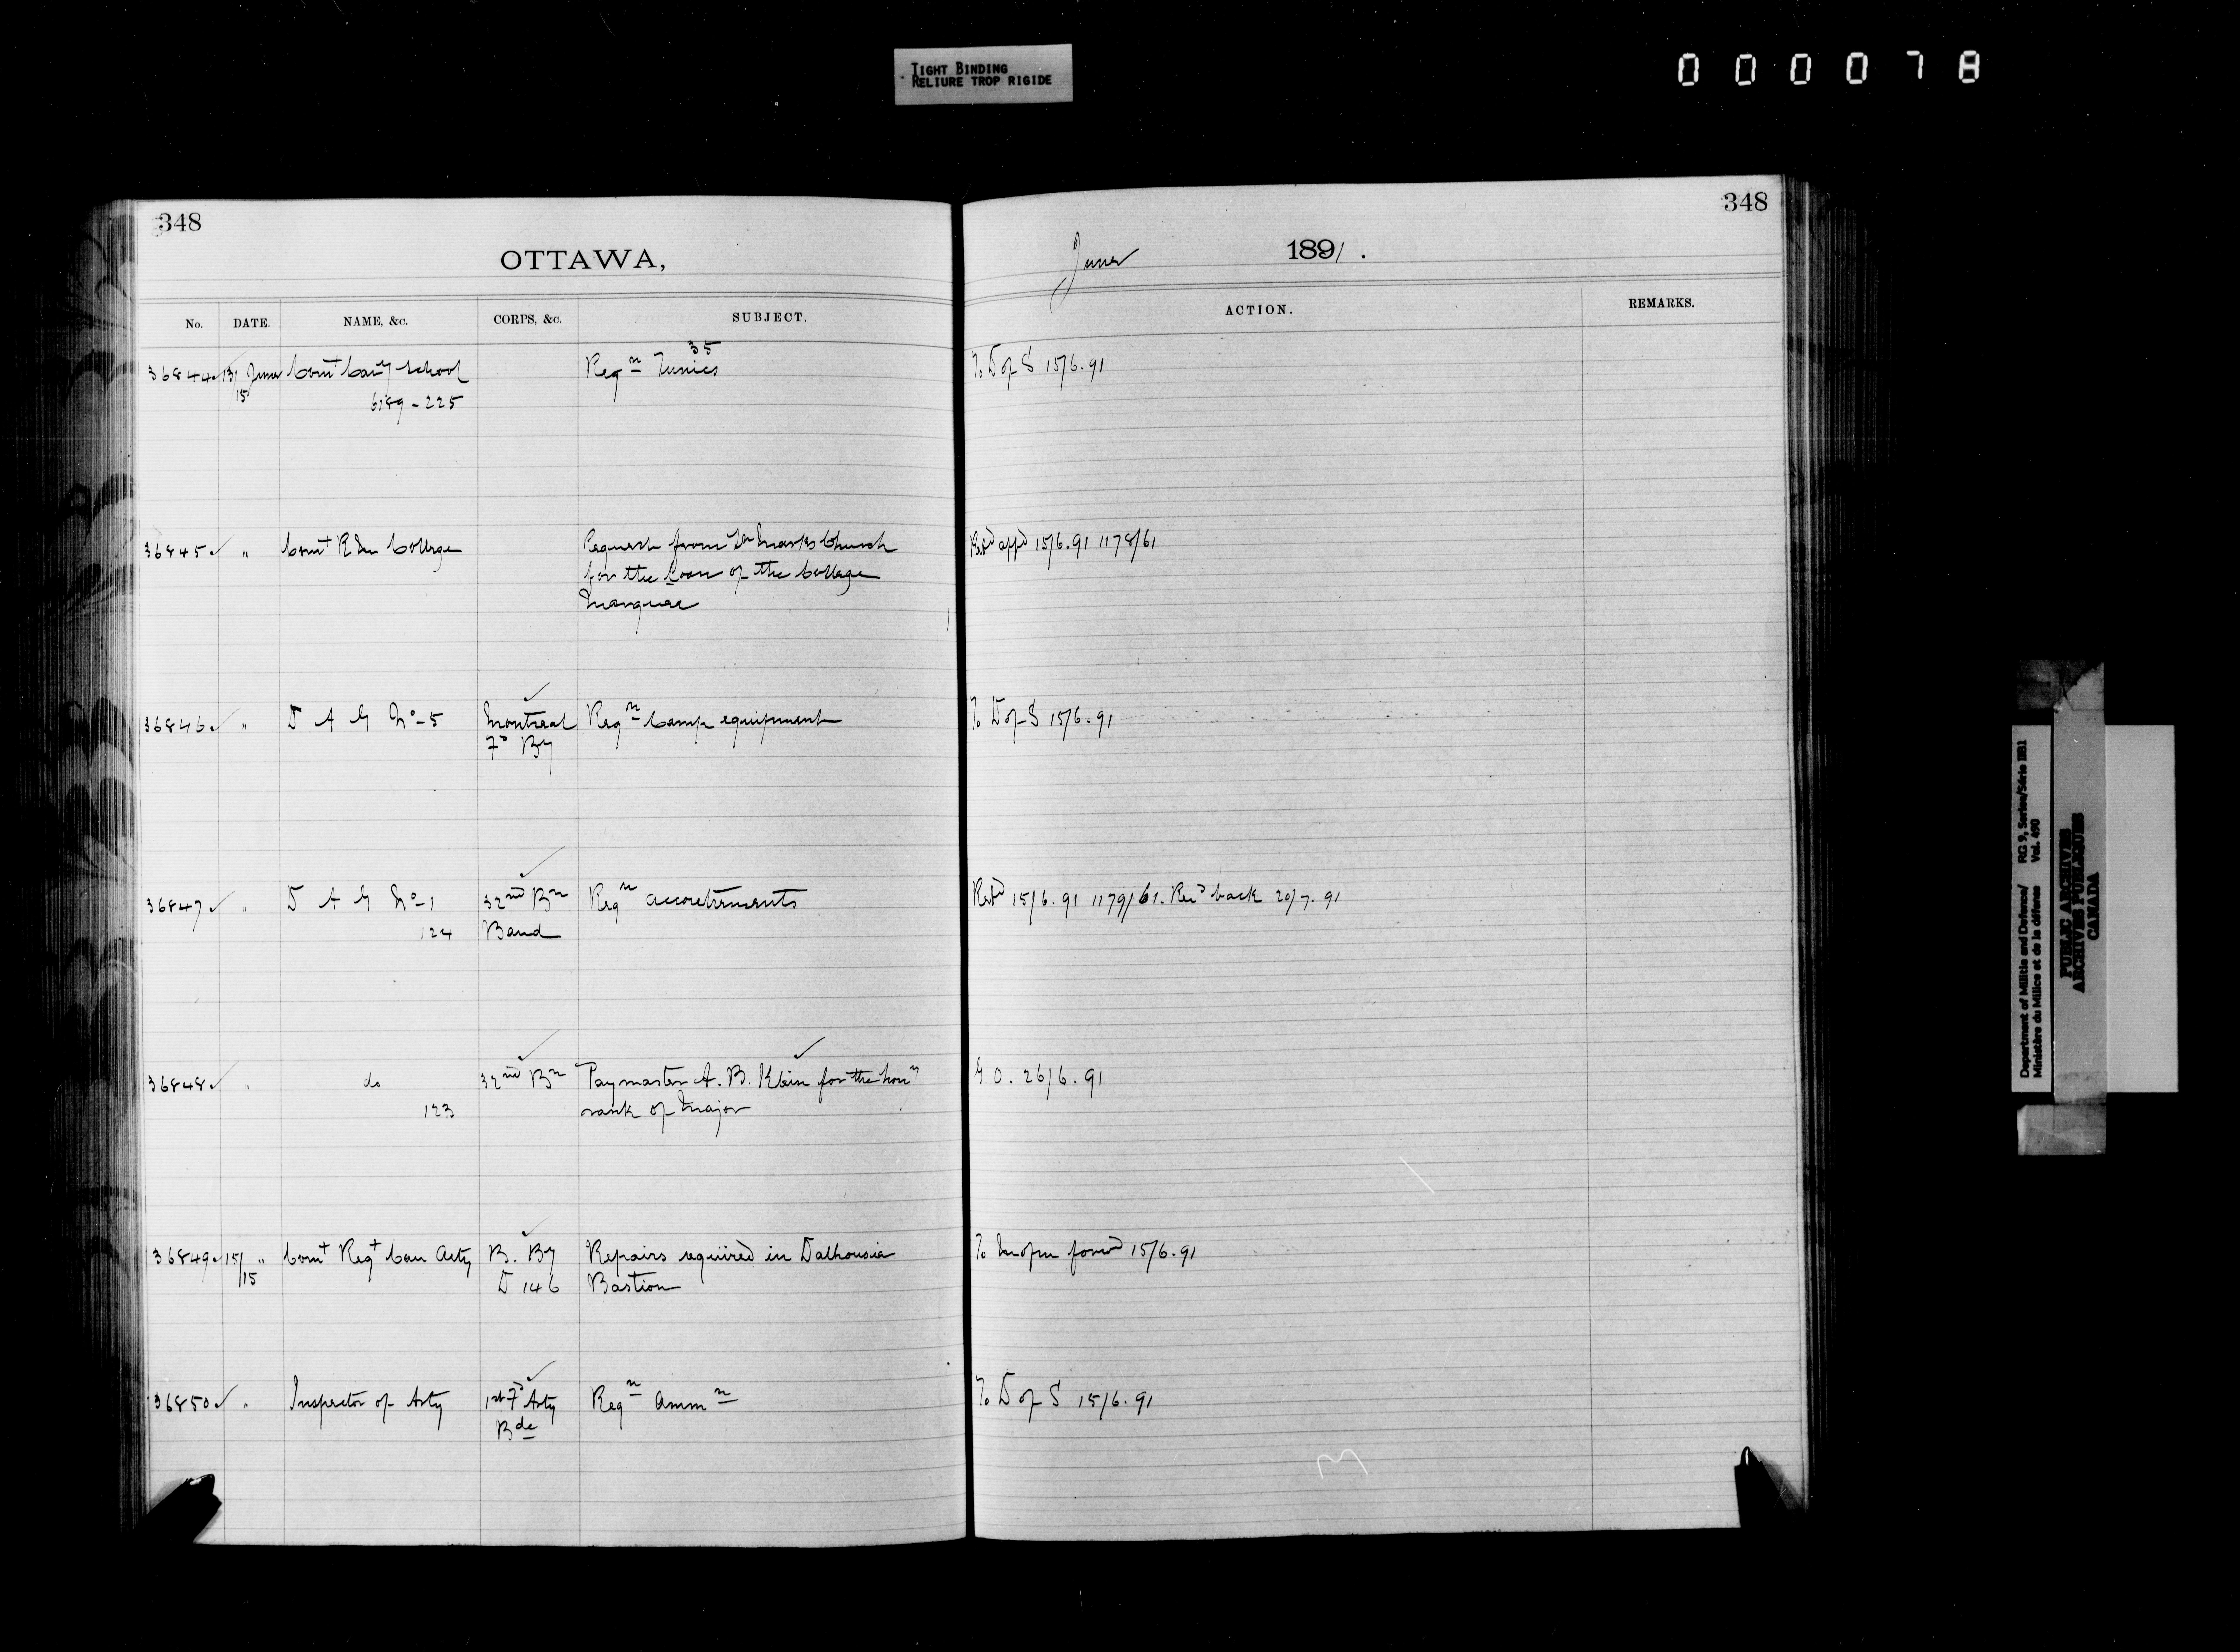 TIGHT BINDING
RELIURE TROP RIGIDE
000078
348
OTTAWA,
No. DATE. NAME, &c. CORPS, &c. SUBJECT.
36844 13/15 June Comt Cavy School Reqn 35 Tunics
6189-225
36845 " Comt R M College Request from St Marks Church
for the Loan of the College
Marquee
36846 " D A G No-5 Montreal Reqn Camp equipment
Fd By
36847 " D A G No-1 32nd Bn Reqn accoutrements
124 Band
36848 " do 32nd Bn Paymaster A. B. Klein for the hony
123 rank of Major
36849 15/15 " Comt Regt Can Arty B. By Repairs required in Dalhousie
D 146 Bastion
36850 " Inspector of Arty 1st Fd Arty Reqn Ammn
Bde
348
June 1891.
ACTION. REMARKS.
To D of S 15/6.91
Retd appd 15/6.91 1178/61
To D of S 15/6.91
Retd 15/6.91 1179/61. Recd back 20/7.91
G.O. 26/6.91
To forwd 15/6.91
To D of S 15/6.91
Department of Militia and Defence/ RG 9, Series/Série IIB1
Ministère du Milice et de la défense Vol. 490
PUBLIC ARCHIVES
ARCHIVES PUBLIQUES
CANADA